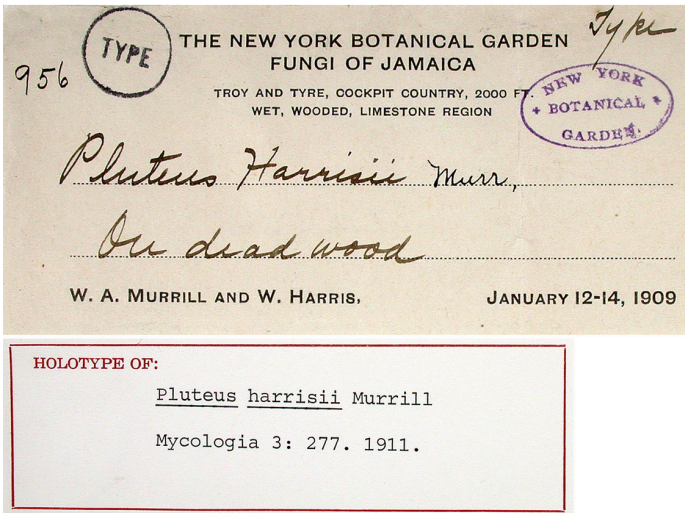 Type
THE NEW YORK BOTANICAL GARDEN
FUNGI OF JAMAICA
TYPE
956
TROY AND TYRE, COCKPIT COUNTRY, 2000 FT.
WET, WOODED, LIMESTONE REGION
NEW YORK
BOTANICAL
GARDEN.
Pluteus Harrisii Murr,
On dead wood
W. A. MURRILL AND W. HARRIS,
JANUARY 12-14, 1909
HOLOTYPE OF:
Pluteus harrisii Murrill
Mycologia 3: 277. 1911.